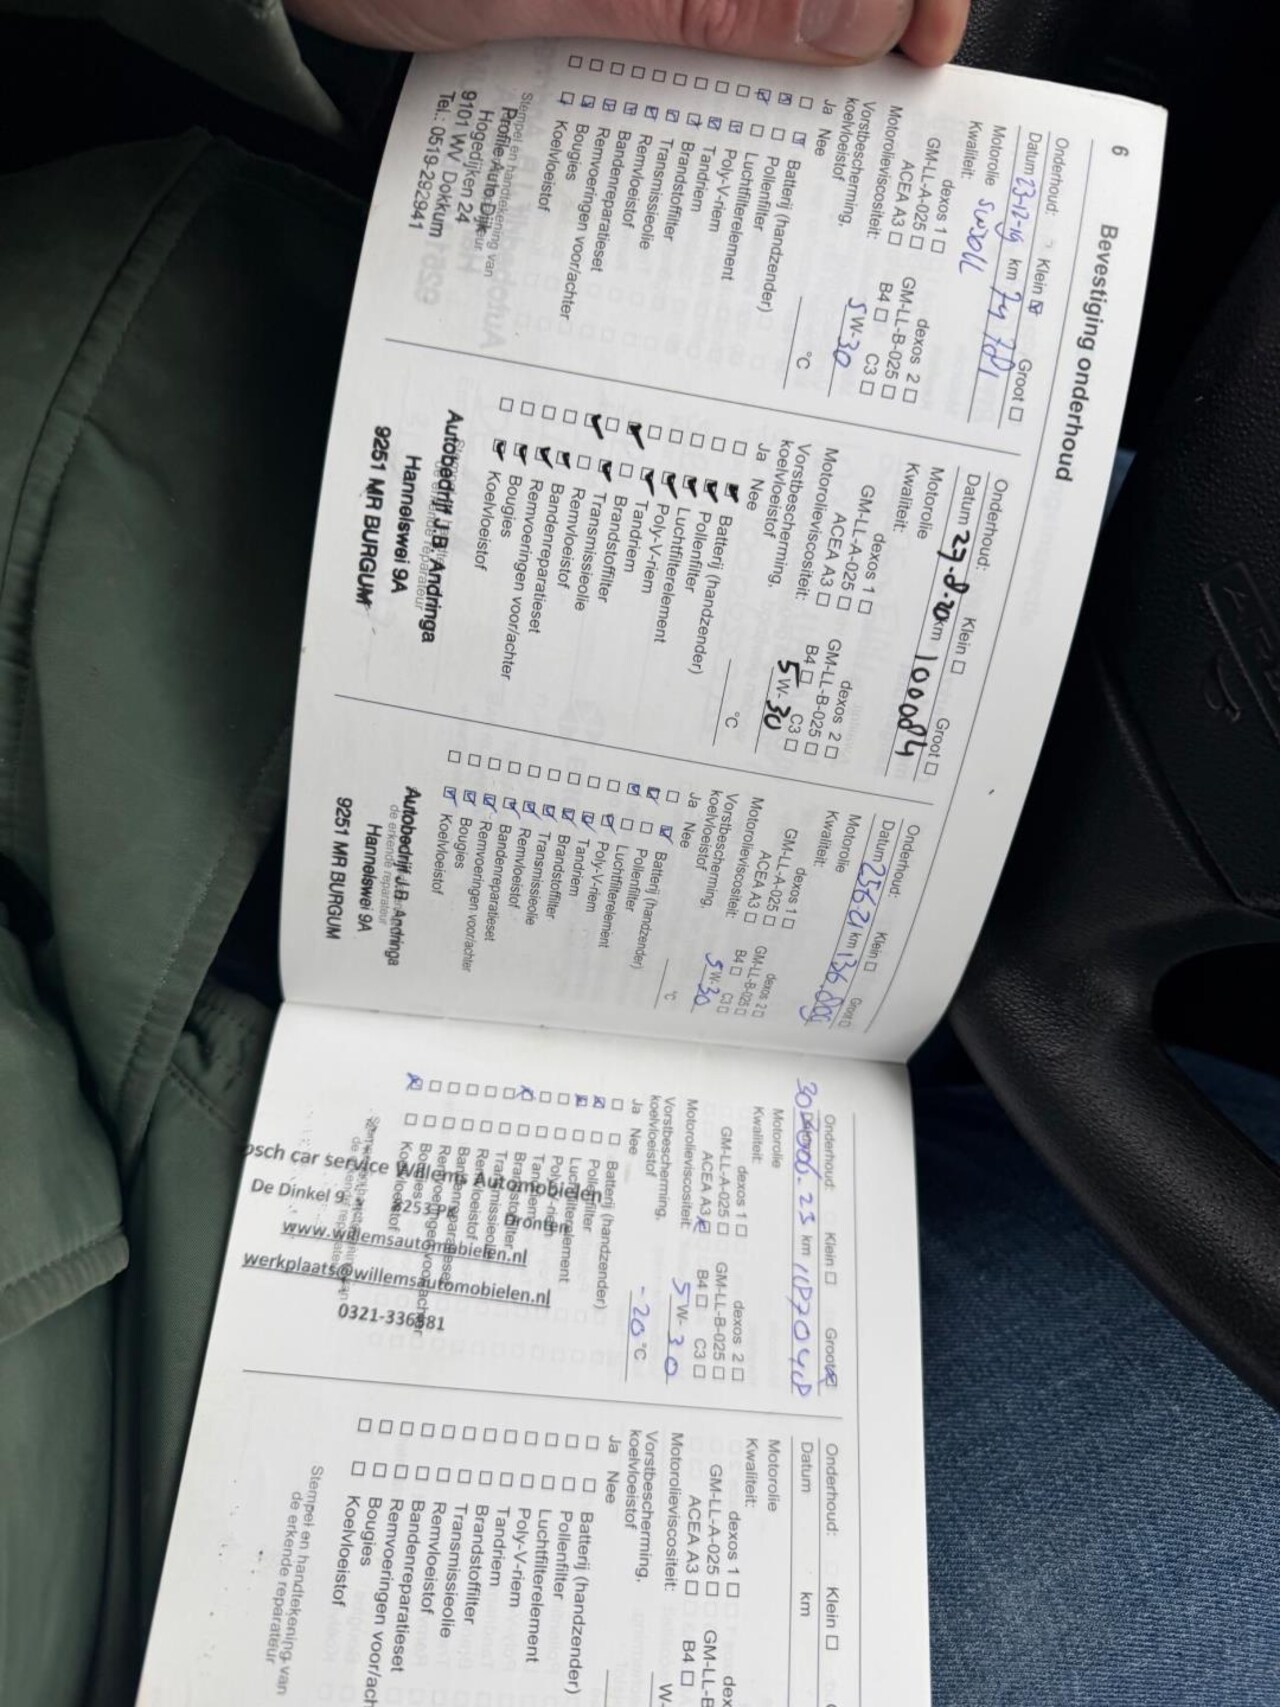 6 Bevestiging onderhoud
Onderhoud: Klein Groot
Datum 23-12-19 km 74 781
Motorolie
Kwaliteit: 5W30LL
dexos 1 dexos 2
GM-LL-A-025 GM-LL-B-025
ACEA A3 B4 C3
Motorolieviscositeit: 5W-30
Vorstbescherming,
koelvloeistof °C
Ja Nee
Batterij (handzender)
Pollenfilter
Luchtfilterelement
Poly-V-riem
Tandriem
Brandstoffilter
Transmissieolie
Remvloeistof
Bandenreparatieset
Remvoeringen voor/achter
Bougies
Koelvloeistof
Stempel en handtekening van
Profile Auto Dijk
Hogedijken 24
9101 WV Dokkum
Tel.: 0519-292941
Onderhoud: Klein Groot
Datum 27-8-20 km 100084
Motorolie
Kwaliteit:
dexos 1 dexos 2
GM-LL-A-025 GM-LL-B-025
ACEA A3 B4 C3
Motorolieviscositeit: 5W-30
Vorstbescherming,
koelvloeistof °C
Ja Nee
Batterij (handzender)
Pollenfilter
Luchtfilterelement
Poly-V-riem
Tandriem
Brandstoffilter
Transmissieolie
Remvloeistof
Bandenreparatieset
Remvoeringen voor/achter
Bougies
Koelvloeistof
de erkende reparateur
Autobedrijf J.B. Andringa
Hannelswei 9A
9251 MR BURGUM
Onderhoud: Klein Groot
Datum km
Motorolie
Kwaliteit:
dexos 1 dexos 2
GM-LL-A-025 GM-LL-B-025
ACEA A3 B4 C3
Motorolieviscositeit: 5W-30
Vorstbescherming,
koelvloeistof °C
Ja Nee
Batterij (handzender)
Pollenfilter
Luchtfilterelement
Poly-V-riem
Tandriem
Brandstoffilter
Transmissieolie
Remvloeistof
Bandenreparatieset
Remvoeringen voor/achter
Bougies
Koelvloeistof
de erkende reparateur
Autobedrijf J.B. Andringa
Hannelswei 9A
9251 MR BURGUM
Onderhoud: Klein Groot
km
Motorolie
Kwaliteit:
dexos 1 dexos 2
GM-LL-A-025 GM-LL-B-025
ACEA A3 B4 C3
Motorolieviscositeit: 5W-30
Vorstbescherming,
koelvloeistof -20 °C
Ja Nee
Batterij (handzender)
Pollenfilter
Luchtfilterelement
Poly-V-riem
Tandriem
Brandstoffilter
Transmissieolie
Remvloeistof
Bandenreparatieset
Remvoeringen voor/achter
Bougies
Koelvloeistof
osch car service Willems Automobielen
De Dinkel 9 Dronten
www.willemsautomobielen.nl
werkplaats@willemsautomobielen.nl
0321-336881
Onderhoud: Klein
Datum km
Motorolie
Kwaliteit:
dexos 1 dex
GM-LL-A-025 GM-LL-B
ACEA A3 B4
Motorolieviscositeit: W-
Vorstbescherming,
koelvloeistof
Ja Nee
Batterij (handzender)
Pollenfilter
Luchtfilterelement
Poly-V-riem
Tandriem
Brandstoffilter
Transmissieolie
Remvloeistof
Bandenreparatieset
Remvoeringen voor/ach
Bougies
Koelvloeistof
Stempel en handtekening van
de erkende reparateur